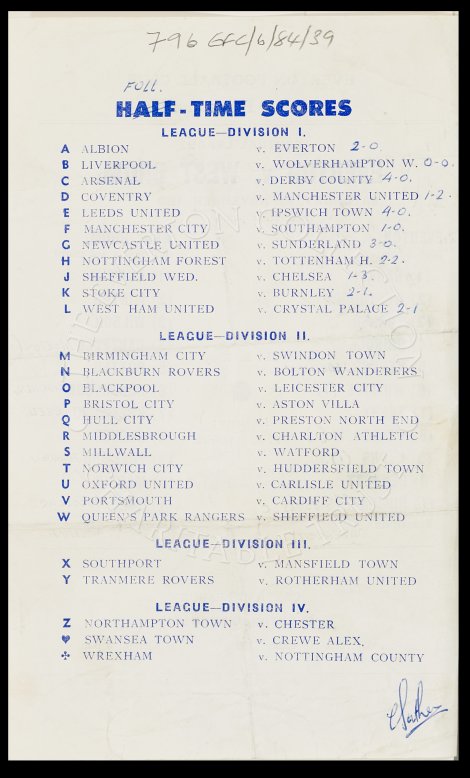 796 EFC/6/84/39
FULL.
HALF-TIME SCORES
LEAGUE—DIVISION I.
A ALBION v. EVERTON 2-0.
B LIVERPOOL v. WOLVERHAMPTON W. 0-0.
C ARSENAL v. DERBY COUNTY 4-0.
D COVENTRY v. MANCHESTER UNITED 1-2.
E LEEDS UNITED v. IPSWICH TOWN 4-0.
F MANCHESTER CITY v. SOUTHAMPTON 1-0.
G NEWCASTLE UNITED v. SUNDERLAND 3-0.
H NOTTINGHAM FOREST v. TOTTENHAM H. 2-2.
J SHEFFIELD WED. v. CHELSEA 1-3.
K STOKE CITY v. BURNLEY 2-1.
L WEST HAM UNITED v. CRYSTAL PALACE 2-1
LEAGUE—DIVISION II.
M BIRMINGHAM CITY v. SWINDON TOWN
N BLACKBURN ROVERS v. BOLTON WANDERERS
O BLACKPOOL v. LEICESTER CITY
P BRISTOL CITY v. ASTON VILLA
Q HULL CITY v. PRESTON NORTH END
R MIDDLESBROUGH v. CHARLTON ATHLETIC
S MILLWALL v. WATFORD
T NORWICH CITY v. HUDDERSFIELD TOWN
U OXFORD UNITED v. CARLISLE UNITED
V PORTSMOUTH v. CARDIFF CITY
W QUEEN'S PARK RANGERS v. SHEFFIELD UNITED
LEAGUE—DIVISION III.
X SOUTHPORT v. MANSFIELD TOWN
Y TRANMERE ROVERS v. ROTHERHAM UNITED
LEAGUE—DIVISION IV.
Z NORTHAMPTON TOWN v. CHESTER
♥ SWANSEA TOWN v. CREWE ALEX.
✣ WREXHAM v. NOTTINGHAM COUNTY